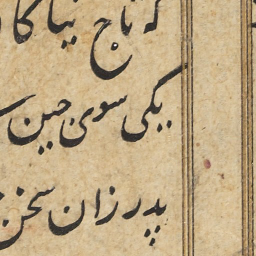 که تاج نیاکا
یکی سوی چین
پدر زان سخن